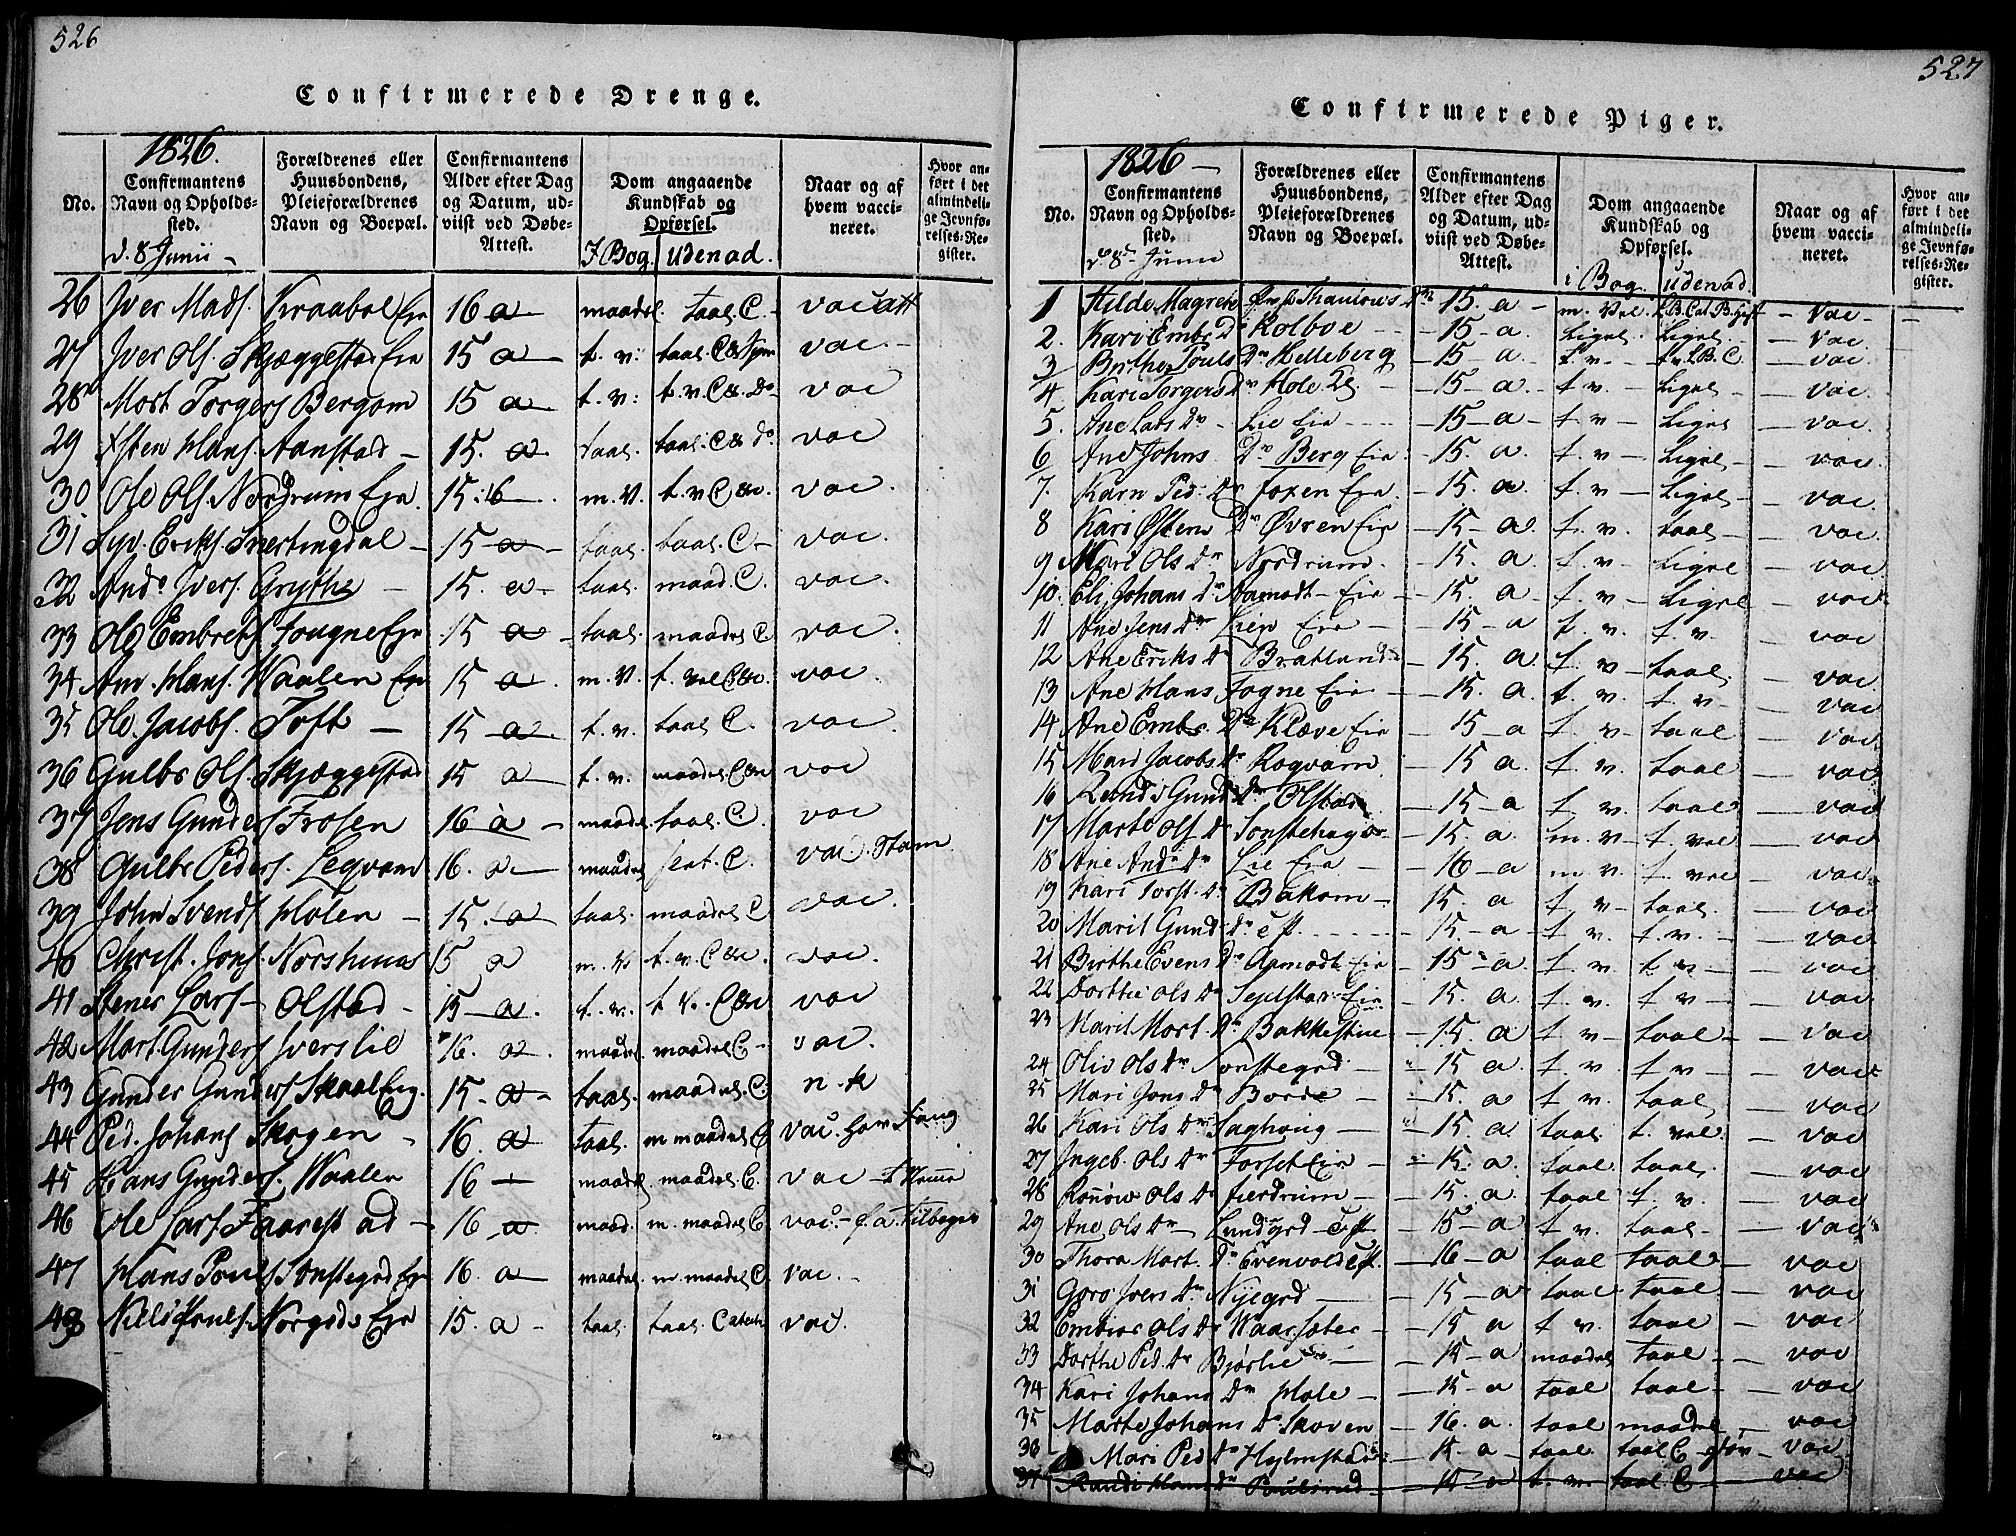 526
Confirmerede Drenge.
1826.
No.
Confirmantens Navn og Opholds-sted.
d. 8 Junii -
Forældrenes eller Huusbondens, Pleieforældrenes Navn og Boepæl.
Confirmantens Alder efter Dag og Datum, ud-viist ved Døbe-Attest.
Dom angaaende Kundskab og Opførsel.
I Bog. udenad.
Naar og af hvem vacci-neret.
Hvor an-ført i det almindeli-ge Jevnfø-relses-Re-gister.
26 Iver Mads. Kraabøl Eie 16 a maadel. taal C. - vac att
27 Iver Ols. Skjæggestad Eie 15 a - t. v: taal. C vac. -
28 Mort Torgers Bergom 15 a - t. v: t. v. C &. Do vac
29 Hans. Aanstad - 15. a. taal. taal. C & do. vac
30 Ole Ols. Nordrum Eie. 15. 6 - m. V. t. v C &c. vac.
31 Syv. Eriks. Snertingdal - 15 - a - taal. taal. C - vac.
32 And. Ivers. Grythe - 15. a - taal. maad. C. vac.
33 Ole Embrets Fougne Eie 15 a - taal. maadel C vac.
34 And. Hans. Waalen Eie 15 a. m. V. t. vel C &c. vac.
35 Ole. Jacobs. Toft - 15 - a - t. v. taal C. vac.
36 Gulbr Ols. Skjæggestad 15 a - t. v. maadel C &c vac
37 Jens Gunders Frosen 16 a - maadel. taal. C. vac
38 Gulbr Peders. Legvam 16. a - maadel C. vac. Stam
39 John Svends. Holen - 15. a - taal. maadel C. vac.
40 Christ. Jons. Norshuus 15 a m. V t. v. C &c. vac.
41 Stener Lars - Olstad - 15 - a. t. v. t. v. C &c vac
42 Mort. Gunders Iverslie 16. a. maadel maadel C - vac.
43 Gunder Gunders Skaal Eig. 15 - a - taal. maadel. C. n. k
44 Ped. Johans Skogen - 16. a taal. m maadel C vac. Hov
45 Hans Gunders. Waalen 16 - maadel. maadel. C. vac -
46 Ole Lars Faarestad - 16 a - maad. m. maadel C. vac. -
47 Hans Pouls Sønstegrd Eie 16. a - maadel. m. maadel C. vac. -
48 Niels Pouls. Norgrds Eie 15. a - taal. taal. Catech vac.
527
Confirmerede Piger.
1826 -
No.
Confirmantens Navn og Opholds-sted.
d. 8de Junii
Forældrenes eller Huusbondens, Pleieforældrenes Navn og Boepæl.
Confirmantens Alder efter Dag og Datum, ud-viist ved Døbe-Attest.
Dom angaaende Kundskab og Opførsel.
i Bog. udenad.
Naar og af hvem vacci-neret.
Hvor an-ført i det almindeli-ge Jevnfø-relses-Re-gister.
1 Hilde Magrete Thaulows 15. a - m. Vel. - vac -
2. Kari Embr. D Kolboe - - 15 - a. Ligel. Ligel. - vac.
3 Birthe Pouls Dr Helleberg - 15 - a t v - t. v. L B. C - vac.
4 Kari Torgers Dr Hole - 15 - a. t. v - Ligel - vac.
5. Ane Lars Dr - Lie Eie - - - 15 - a - t. v - Ligel - vac.
6 Ane Johns Dr Berg Eie - 15. a. t. v - Ligel - - vac.
7. Karn Ped. Dr Joxen Eie. - 15. a. t. v - Ligel - - vac.
8 Kari Østens Dr Øvren Eie - 15 - a. t. v. taal - vac.
9 Mari Ols Dr Nordrum. - 15. a. t. v - Ligel - vac.
10. Eli Johans D. Aamodt - Eie - 15. a t. v - Ligel - vac.
11 Ane Jens Dr Lien Eie - - 15 - a t. v. t. v. - vac
12 Ane Eriks Dr Bratland - 15. a. t. v - taal. - vac.
13 Ane Hans Fogne Eie - - 15. a. t. v. t. v - vac
14 Ane Embr. Dr Kleve Eie - 15 - a t. v - taal - vac.
15 Mari Jacobs Dr Rogvam - 15 a. t. v. taal - vac.
16 Rand. Gund. Dr. Olstad - 15 - a t. v. taal - vac
17 Marte Ols Dr Sønstehagen - 15. a. m. v - t. vel - vac
18 Ane And. Dr Lie Eie - - 16 - a m v. t. vel - vac.
19 Kari Torst. Dr Bakom - 15. a t. v - taal. - vac
20 Marit Gund. Dr - 15. - a - t. v. t. v. - - vac
21 Birthe Evens Dr Aamodt Eie - 15 - a. t. v. t v - - vac
22 Dorthe Ols Dr Eie - 15. a t. v. t v - - vac
23 Marit Mort. Dr Bakkestue - 15. a t. v - taal - - vac
24 Oliv Ols Dr Sønstegrd - 15 a. t. v. t v - - vac
25 Mari Jons Dr Borde - - 15. a t v. taal - vac
26 Kari Ols Dr Saghoug - - 15. a. taal t. vel - vac
27 Ingeb. Ols Dr Forset Eie - 15. a. taal taal. - vac
28 Rønnøv Ols Dr Fierdrum - - 15. a. taal t. v. - vac
29 Ane Ols Dr Lundgrd - 15 - a t. v. taal - - vac
30 Thora Mort. Dr Evenvold - 16 - a taal taal - - vac
31 Goro Ivers Dr Nyegrd - - 15 - a taal taal - - vac
32 Embior Ols Dr Waarsæter - - 15 a t v. taal - vac
33 Dorthe Ped. Dr Bjørlie - - 15 - a maadel taal - - vac
34 Kari Johans Dr Hole - - 15 - a taal taal - - vac
35 Marte Johans Dr Skoven - 16. a. taal maadel - vac
36 Mari Ped Dr Hylmstad - 15. a - taal taal C - vac
37 Randi Hans Dr Poulsrud - 15 - a t. v. taal C - vac